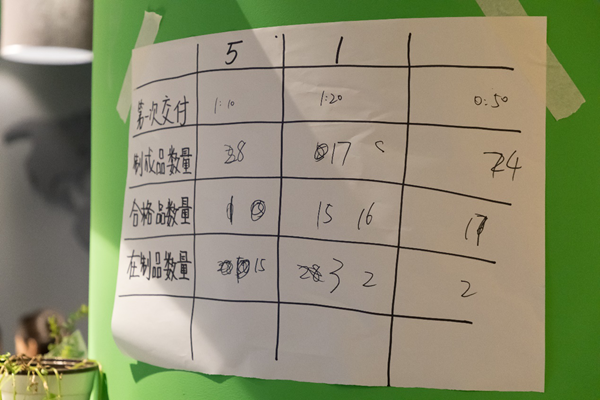 5 1
第一次交付 1:10 1:20 0:50
制成品数量 38 17 24
合格品数量 1 15 16 17
在制品数量 15 3 2 2